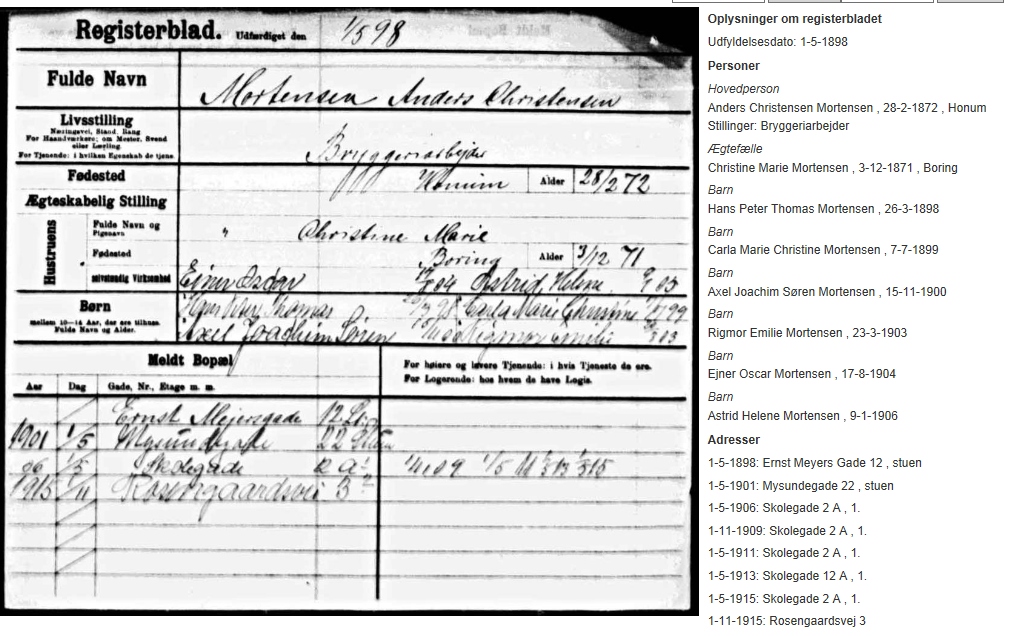 Registerblad. Udfærdiget den 1/5 98
Fulde Navn
Mortensen Anders Christensen
Livsstilling
Næringsvej, Stand, Rang
For Haandværkere: om Mester, Svend
eller Lærling.
For Tjenende: i hvilken Egenskab de tjene.
Bryggeriarbejder
Fødested
Honum Alder 28/2 72
Ægteskabelig Stilling
Hustruens
Fulde Navn og
Pigenavn
" Christine Marie
Fødested Boring Alder 3/12 71
selvstændig Virksomhed
Ejner Oscar 04 Astrid Helene
Børn
mellem 10-14 Aar, der ere tilhuse.
Fulde Navn og Alder.
Hans Peter Thomas 98 Carla Marie Christine 7/7 99
Axel Joachim Søren Rigmor Emilie
Meldt Bopæl
For høiere og lavere Tjenende: i hvis Tjeneste de ere.
For Logerende: hos hvem de have Logis.
Aar Dag Gade, Nr., Etage m. m.
Ernst Mejersgade 12 St
1901 1/5 Mysundegade 22 Stuen
06 1/5 Skolegade 2 A 1
1915 1/11 Rosengaardsvei 3
Oplysninger om registerbladet
Udfyldelsesdato: 1-5-1898
Personer
Hovedperson
Anders Christensen Mortensen , 28-2-1872 , Honum
Stillinger: Bryggeriarbejder
Ægtefælle
Christine Marie Mortensen , 3-12-1871 , Boring
Barn
Hans Peter Thomas Mortensen , 26-3-1898
Barn
Carla Marie Christine Mortensen , 7-7-1899
Barn
Axel Joachim Søren Mortensen , 15-11-1900
Barn
Rigmor Emilie Mortensen , 23-3-1903
Barn
Ejner Oscar Mortensen , 17-8-1904
Barn
Astrid Helene Mortensen , 9-1-1906
Adresser
1-5-1898: Ernst Meyers Gade 12 , stuen
1-5-1901: Mysundegade 22 , stuen
1-5-1906: Skolegade 2 A , 1.
1-11-1909: Skolegade 2 A , 1.
1-5-1911: Skolegade 2 A , 1.
1-5-1913: Skolegade 12 A , 1.
1-5-1915: Skolegade 2 A , 1.
1-11-1915: Rosengaardsvej 3